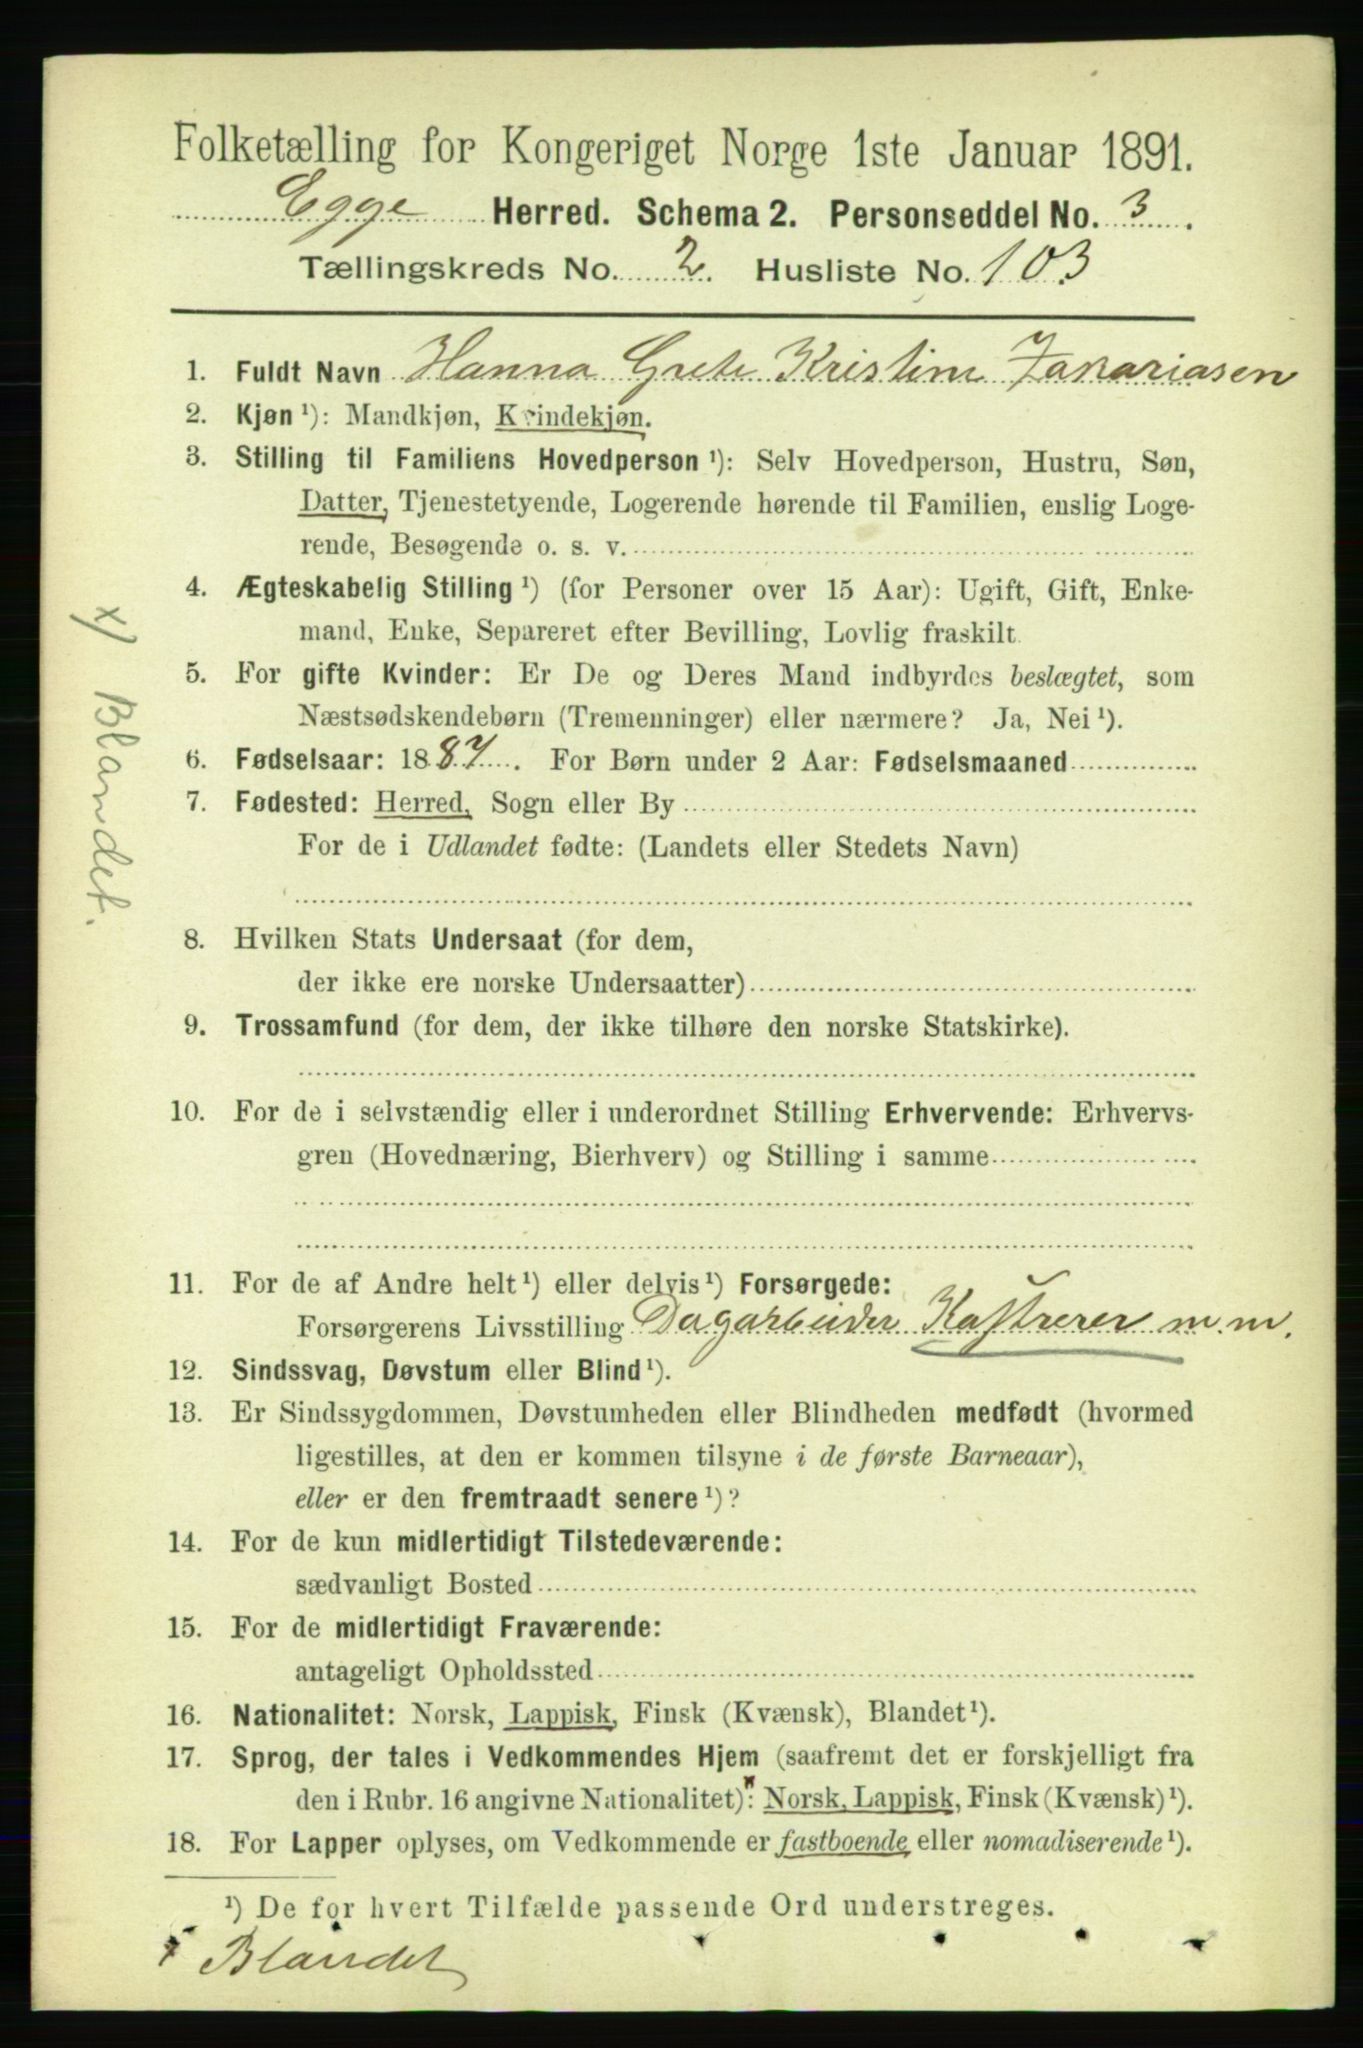 Folketælling for Kongeriget Norge 1ste Januar 1891.
Egge Herred. Schema 2. Personseddel No. 3.
Tællingskreds No. 2. Husliste No. 103
1. Fuldt Navn Hanna Grete Kristine Zakariasen
2. Kjøn ¹): Mandkjøn, Kvindekjøn.
3. Stilling til Familiens Hovedperson ¹): Selv Hovedperson, Hustru, Søn,
Datter, Tjenestetyende, Logerende hørende til Familien, enslig Loge-
rende, Besøgende o. s. v.
4. Ægteskabelig Stilling ¹) (for Personer over 15 Aar): Ugift, Gift, Enke-
mand, Enke, Separeret efter Bevilling, Lovlig fraskilt.
5. For gifte Kvinder: Er De og Deres Mand indbyrdes beslægtet, som
Næstsødskendebørn (Tremenninger) eller nærmere? Ja, Nei ¹).
6. Fødselsaar: 1887. For Børn under 2 Aar: Fødselsmaaned
7. Fødested: Herred, Sogn eller By
For de i Udlandet fødte: (Landets eller Stedets Navn)
8. Hvilken Stats Undersaat (for dem,
der ikke ere norske Undersaatter)
9. Trossamfund (for dem, der ikke tilhøre den norske Statskirke).
10. For de i selvstændig eller i underordnet Stilling Erhvervende: Erhvervs-
gren (Hovednæring, Bierhverv) og Stilling i samme
11. For de af Andre helt ¹) eller delvis ¹) Forsørgede:
Forsørgerens Livsstilling Dagarbeider Kastrerer m.m.
12. Sindssvag, Døvstum eller Blind ¹).
13. Er Sindssygdommen, Døvstumheden eller Blindheden medfødt (hvormed
ligestilles, at den er kommen tilsyne i de første Barneaar),
eller er den fremtraadt senere ¹)?
14. For de kun midlertidigt Tilstedeværende:
sædvanligt Bosted
15. For de midlertidigt Fraværende:
antageligt Opholdssted
16. Nationalitet: Norsk, Lappisk, Finsk (Kvænsk), Blandet ¹).
17. Sprog, der tales i Vedkommendes Hjem (saafremt det er forskjelligt fra
den i Rubr. 16 angivne Nationalitet) x: Norsk, Lappisk, Finsk (Kvænsk) ¹).
18. For Lapper oplyses, om Vedkommende er fastboende eller nomadiserende ¹).
¹) De for hvert Tilfælde passende Ord understreges.
x Blandet
x) Blandet.